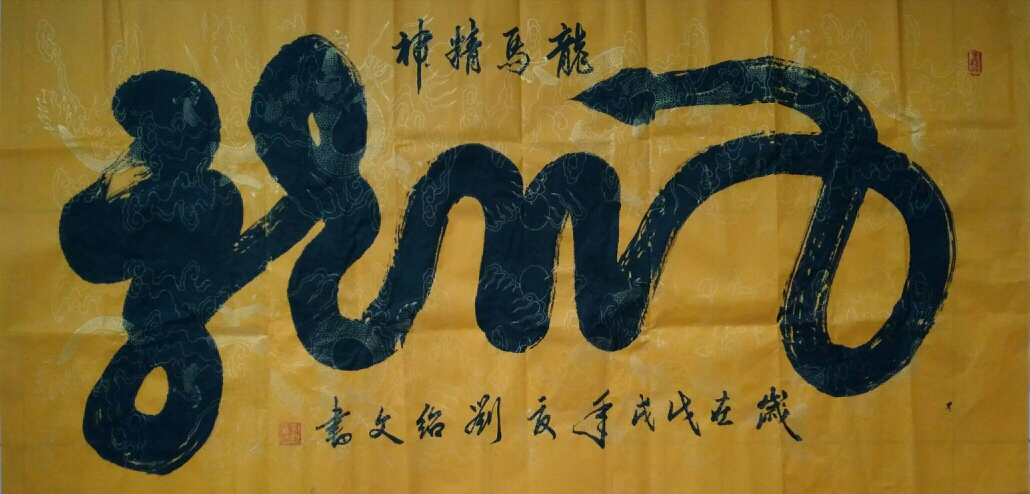 龍馬精神
歲在戊戌年夏劉紹文書